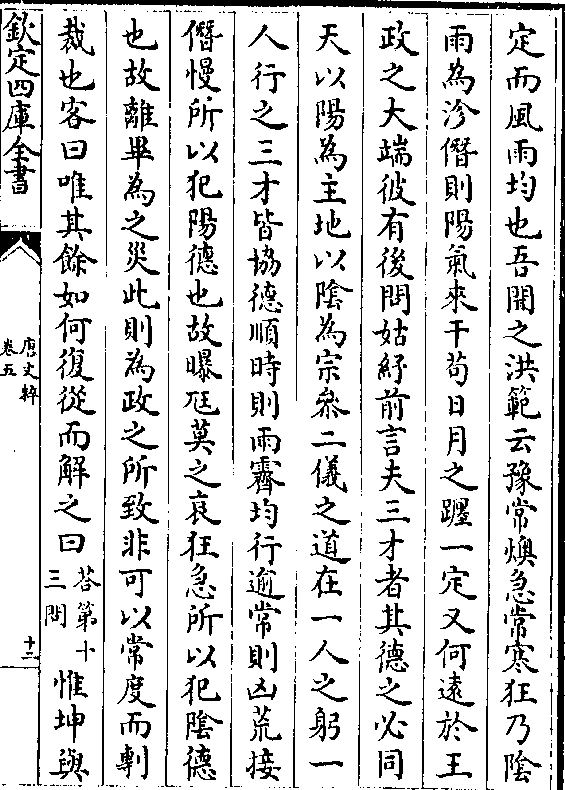 定而風雨均也吾聞之洪範云豫常燠急常寒狂乃陰
雨為沴僭則陽氣來干苟日月之躔一定又何遠於王
政之大端彼有後問姑紓前言夫三才者其德之必同
天以陽為主地以陰為宗叅二儀之道在一人之躬一
人行之三才皆協德順時則雨霽均行逾常則凶荒接
僭慢所以犯陽德也故曝尫莫之哀狂急所以犯陰德
也故離畢為之災此則為政之所致非可以常度而剸
裁也客曰唯其餘如何復從而解之曰荅第十三問惟坤與
欽定四庫全書
唐文粹
卷五
十二